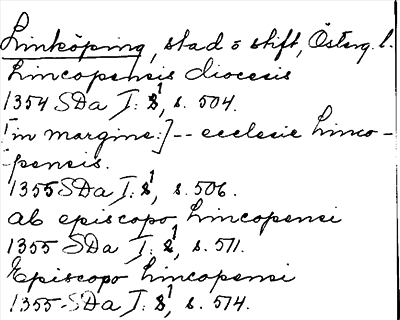 Linköping, stad o stift, Österg. l.
Lincopensis diocesis
1354 SDa I: 1, s. 504.
[in margine:] -- ecclesie Linco-
pensis.
1355 SDa I: 1, s. 506.
ab episcopo Lincopensi
1355 SDa I: 1, s. 511.
Episcopo Lincopensi
1355 SDa I: 1, s. 514.